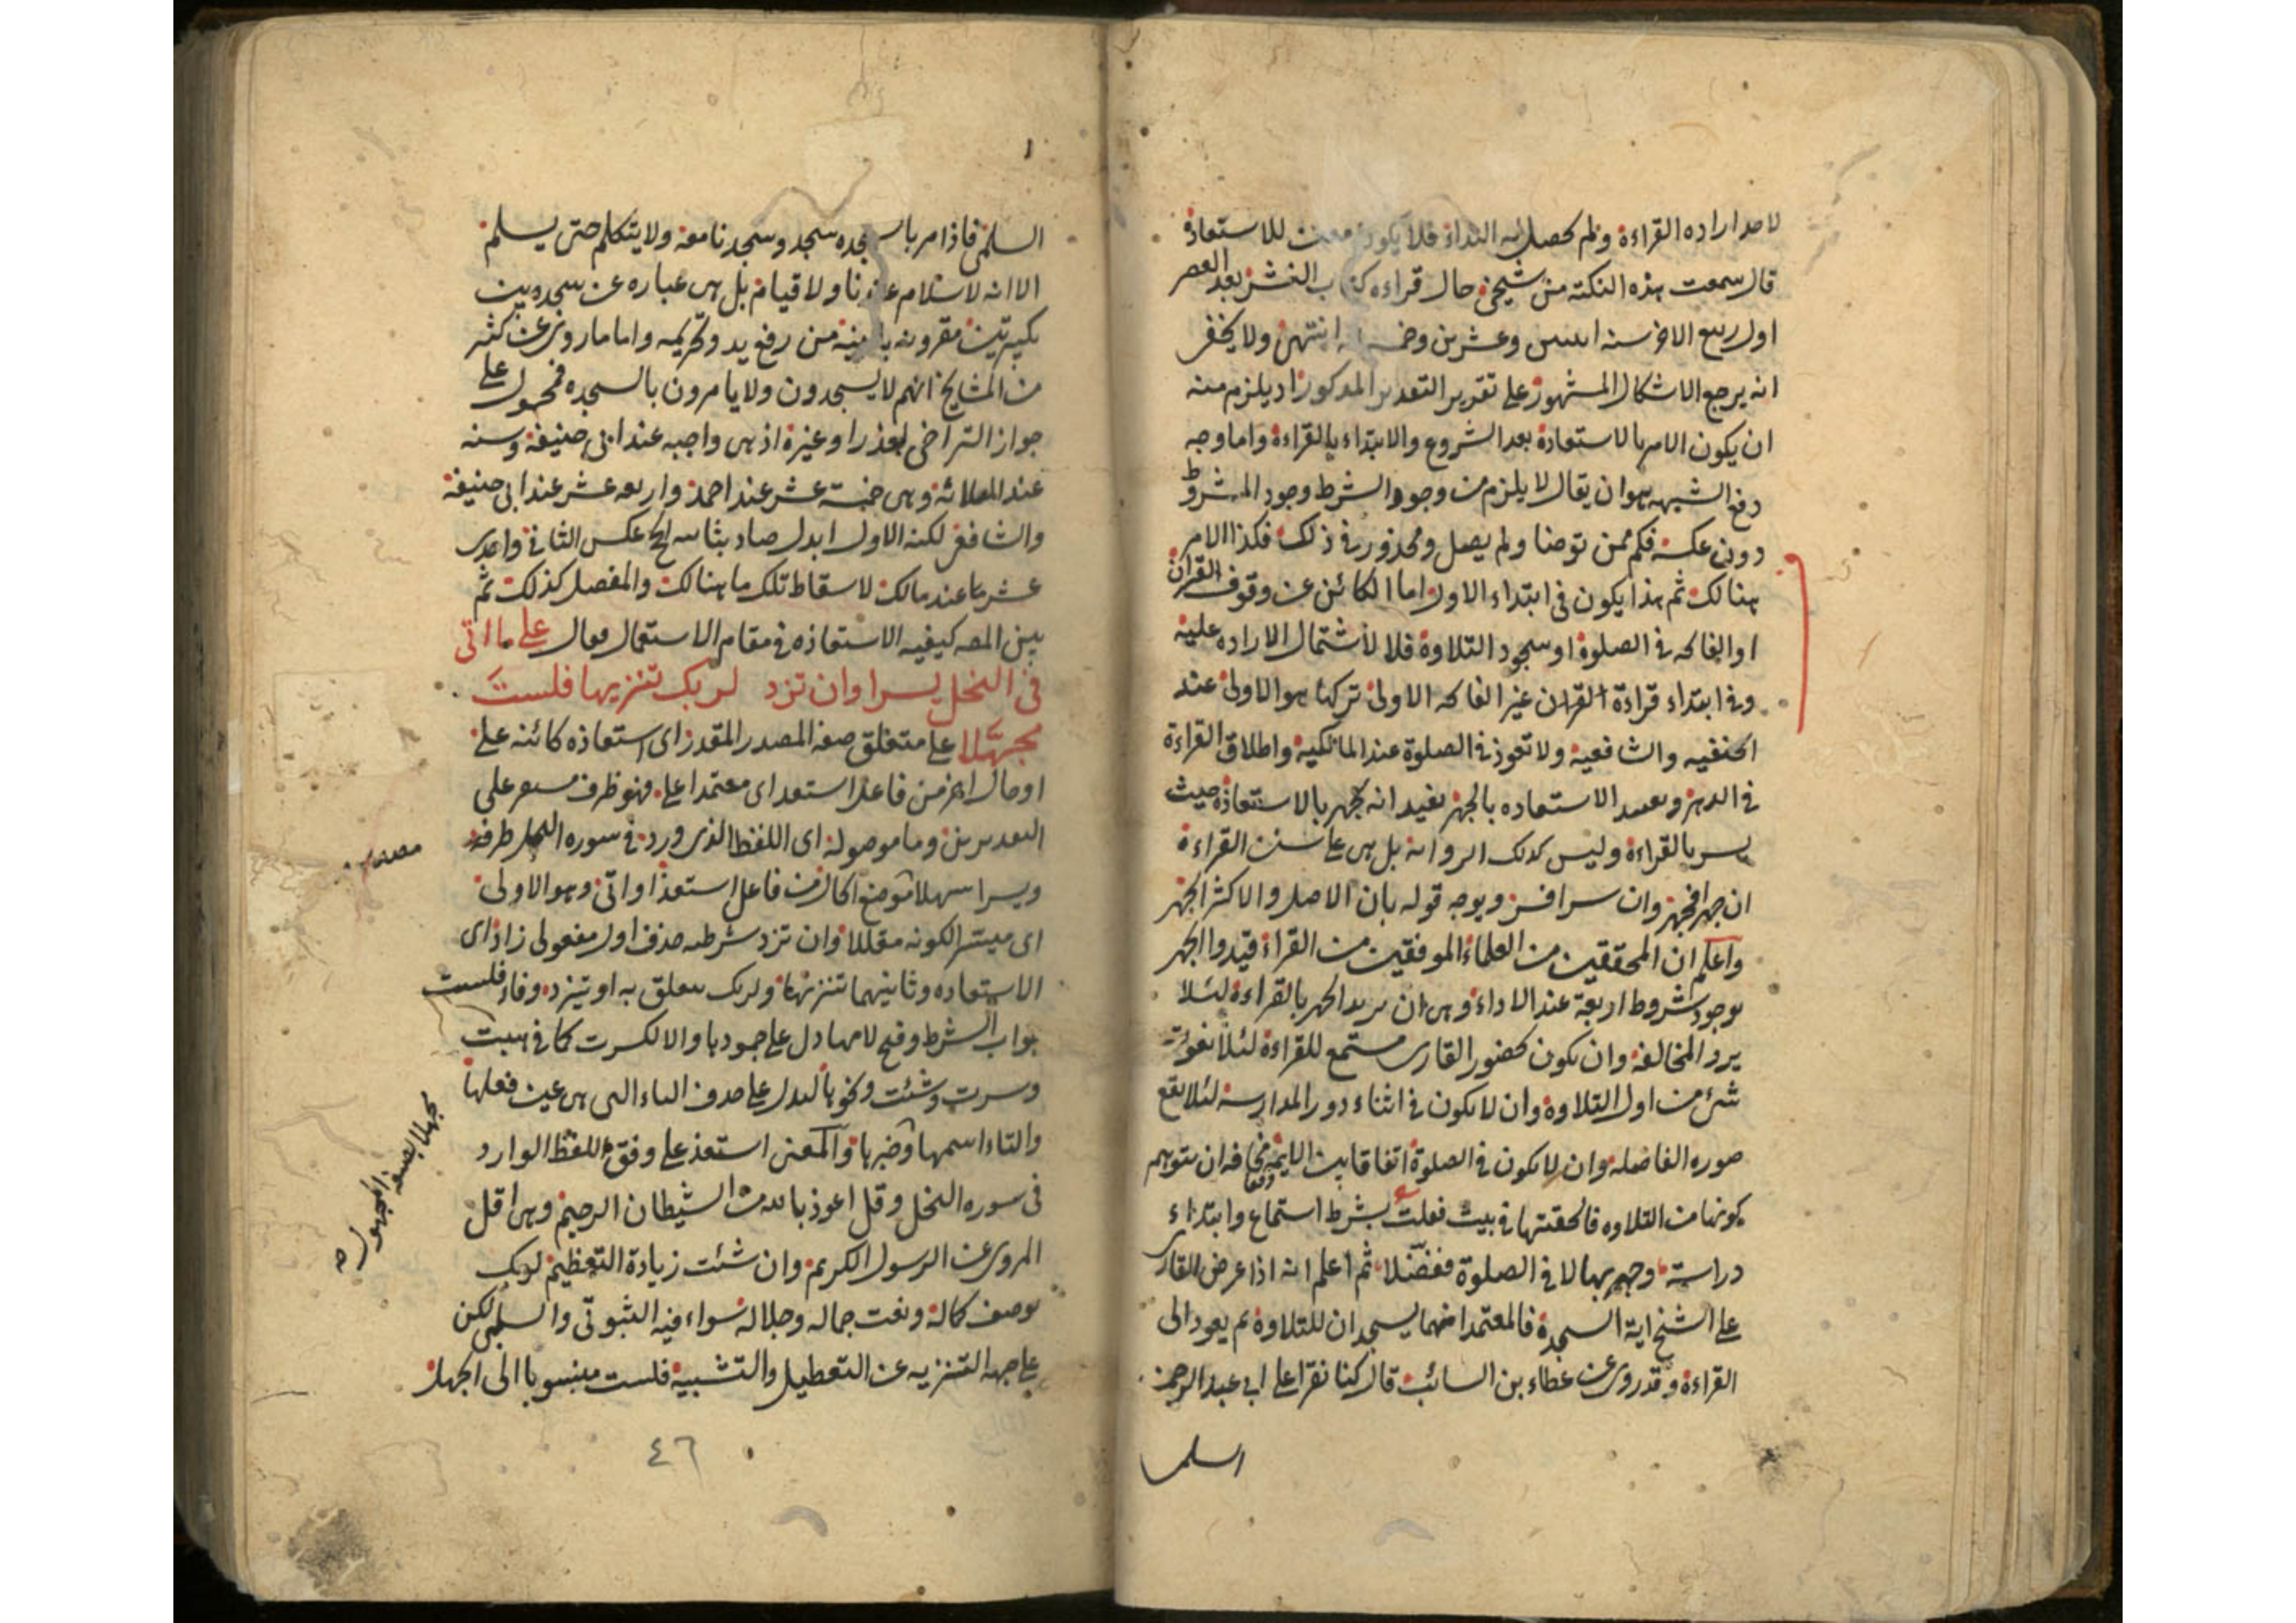 لاحد اراده القراءة ولم يحصل له النداء فلا يكون معنى للاستعاذة
قال سمعت هذه النكتة من شيخي حال قراءه كتاب النشر بعد العصر
اول ربيع الاخر سنه وعشرين انتهى ولا يخفى
انه يرجع الاشكال المشهور على تقرير التقدير المذكور اذ يلزم منه
ان يكون الامر بالاستعاذة بعد الشروع والابتداء بالقراءة واما وجه
دفع الشبهه هو ان يقال لا يلزم من وجود الشرط وجود المشروط
دون عكسه فكم ممن توضا ولم يصل ومحذور في ذلك فكذا الامر
هنالك ثم هذا يكون في ابتداء الاول اما الكائن عن وقوف القران
او الفاتحه في الصلوة او سجود التلاوة فلا لاشتمال الاراده عليه
وفي ابتداء قراءة القران غير الفاتحه الاولى تركها هو الاولى عند
الحنفيه والشافعيه ولا تعوذ في الصلوة عند المالكيه واطلاق القراءة
في الدهر وتقييد الاستعاذه بالجهر يفيد انه يجهر بالاستعاذة حيث
يسر بالقراءة وليس كذلك الروايه بل هي على سنن القراءة
ان جهرا فجهر وان سرا فسر ويوجه قوله بان الاصل والاكثر الجهر
واعلم ان المحققين من العلماء الموفقين من القراء قيدوا الجهر
بوجود شروط اربعة عند الاداء وهي ان يريد الجهر بالقراءة لئلا
يرد المخالفه وان يكون بحضور القارى مستمع للقراءة لئلا يفوته
شئ من اول التلاوه وان لا يكون في اثناء دور المدارسة لئلا يقع
صوره الفاصله وان لا يكون في الصلوة اتفاقا بين الايمه مخافه ان يتوهم
كونها من التلاوه فالحقتها في بيت فقلت بشرط استماع وابتداء
دراسة وجهر بها لا في الصلوة ففصّلا ثم اعلم انه اذا عرض القارى
على الشيخ اية السجدة فالمعتمد انهما يسجدان للتلاوة ثم يعود الى
القراءة وقد روى عن عطاء بن السائب قال كنا نقرا على ابي عبد الرحمن
السلمى
السلمى فاذا مر بالسجده سجد وسجدنا معه ولا يتكلم حتى يسلم
الا انه لا سلام عندنا ولا قيام بل هي عباره عن سجدة بين
تكبيرتين مقرونه بالنية من رفع يد وتحريمه واما ما روى عن كثير
من المشايخ انهم لا يسجدون ولا يامرون بالسجده فمحمول على
جواز التراخى لعذر او غيره اذ هي واجبه عند ابي حنيفة وسنه
عند الثلاثه وهي خمسة عشر عند احمد واربعه عشر عند ابي حنيفة
والشافعى لكنه الاول ابدل صاد بثانيه الحج عكس الثاني واحدى
عشر عند مالك لاسقاط تلك ما هنالك والمفصل كذلك ثم
بين المصـ كيفيه الاستعاذه في مقام الاستعمال فقال على ما اتى
فى النحل يسرا وان تزد لربك تنزيها فلست
مجهّلا على متعلق صفه المصدر المقدر اى استعاذه كائنه على
او حال اخر من فاعل استعد اى معتمدا على فهو ظرف مستقر على
التقديرين وما موصوله اى اللفظ الذى ورد في سوره النحل ظرفه
ويسرا سهلا موضع الحال من فاعل استعذ او اتى وهو الاولى
اى ميسّرا لكونه مقللا وان تزد شرطيه حذف اول مفعولى زاد اى
الاستعاذه وثانيهما تنزيها ولربك متعلق به او تبزد وفاء فلست
جواب الشرط وفتح لامها دل على جمودها والا لكسرت كما في هبت
وسرت وشئت ونحوها ليدل على حذف الياء التى هي عين فعلها
والتاء اسمها وخبرها والمعنى استعذ على وفق اللفظ الوارد
فى سوره النحل وقل اعوذ بالله من الشيطان الرجيم وهي اقل
المروى عن الرسول الكريم وان شئت زيادة التعظيم لربك
بوصف كماله ونعت جماله وجلاله سواء فيه الثبوتى والسلبى لكن
على جهه التنزيه عن التعطيل والتشبيه فلست منسوبا الى الجهل
مجهلا بصيغه المجهول صح
٤٦